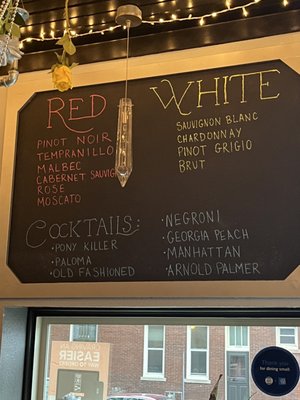 RED
PINOT NOIR
TEMPRANILLO
MALBEC
CABERNET SAUVIG
ROSE
MOSCATO
WHITE
SAUVIGNON BLANC
CHARDONNAY
PINOT GRIGIO
BRUT
COCKTAILS:
• PONY KILLER
• PALOMA
• OLD FASHIONED
• NEGRONI
• GEORGIA PEACH
• MANHATTAN
• ARNOLD PALMER
EASIER
WAY TO ORDER!
Thank you
for dining small